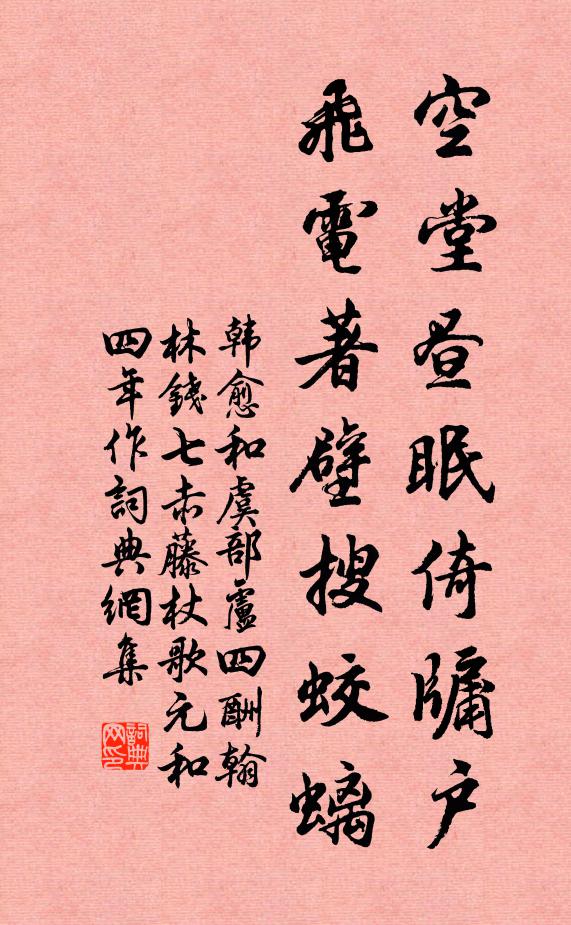 空堂昼眠倚牖户
飛電著壁搜蛟螭
韩愈和虞部盧四酬翰
林錢七赤藤杖歌元和
四年作詞典網集
詞典网印